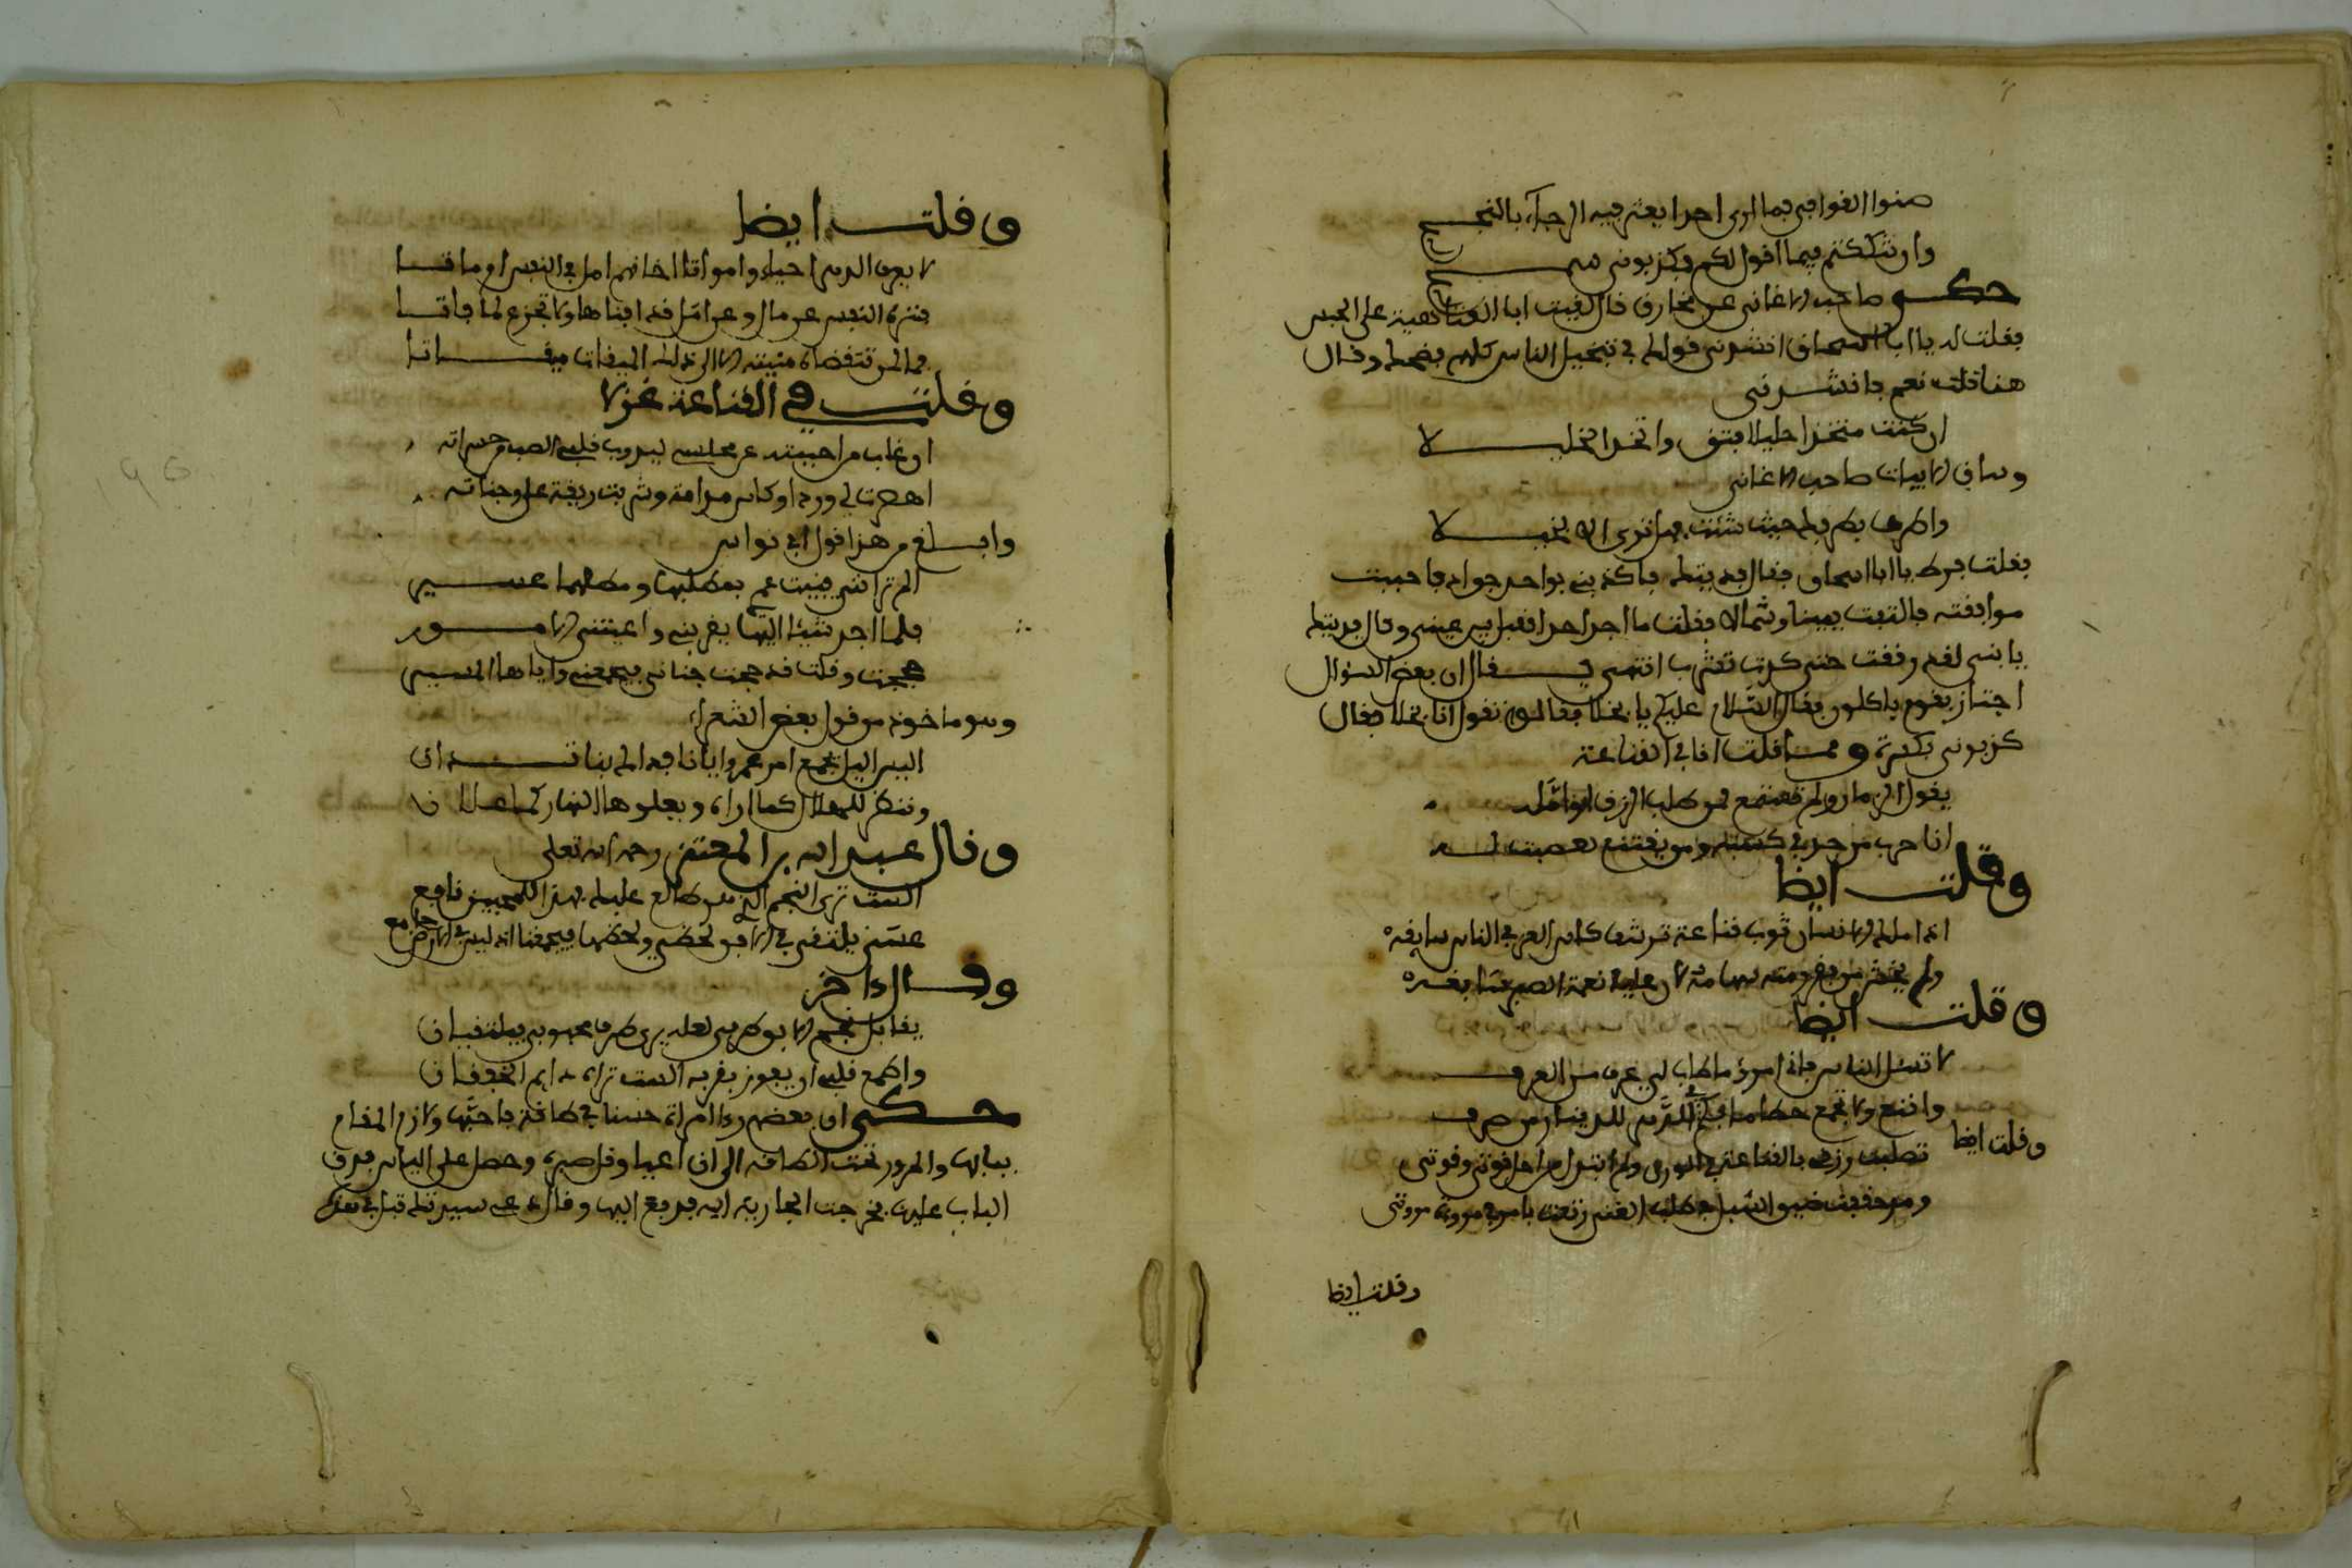 صنوا القوافي فما أرى أحدا يعثر فيه الرجاء بالنجح
وإن شككتم فيما أقول لكم فكذبوني بسمح
حكى صاحب الأغاني عن مخارق قال لقيت أبا العتاهية على الجسر
فقلت له يا أبا اسحاق انشدني قولك في تبخيل الناس كلهم فضحك وقال
هنا قلت نعم فانشدني
ان كنت متخذا خليلا فتنق وانتقد الخليلا
وساق الابيات صاحب الاغاني
واضرب بطرفك حيث شئت فهل ترى الا بخيلا
فقلت فرطت يا ابا اسحاق فقال فديتك فاكذبني بواحد جواد فاحببت
موافقته فالتفت يمينا وشمالا فقلت ما اجد احدا فقبل بين عيني وقال فديتك
يا بني لقد رفقت حتى كدت تشرب انتهى قال ان بعض السؤال
اجتاز بقوم ياكلون فقال السلام عليكم يا بخلا فقالوا تقول انا بخلا فقال
كذبوني بكسرة ومما قلت انا في القناعة
يقول الزمان ولم تستمع لمن طلب الرزق او امله
انا حرب من جد في كسبه ومن يقتنع تعصبت له
وقلت ايضا
اذا املك الانسان ثوب قناعة ترشف كاس العز في الناس سايغه
ولم يخش من فقر ومنته بها متى لان عليه نعمة الصبر سابغه
وقلت ايضا
لا تسئل الناس فاني امرؤ ما طاب لي عرف من العرف
واقنع ولا تجمع حطاما فكم في الدهر للدينار من صرف
وقلت ايضا
تطلبت رزقي بالقناعة في الورى ولم ابتذل من اجل قوتي وقوتي
ومذ خفت ضيم الذل في طلب الغنى رفعت بامري مروة مروتي
وقلت ايضا
وقلت ايضا
لا يعرف الدهر احياء وامواتا اخا نهم امل في النفس او ماتا
فنزه النفس عن مال وعن امل قد افناها ولا تجزع لما فاتا
فما لمن تتقضاه منيته الا الى ذلك الميقات ميقاتا
وقلت في القناعة غزلا
ان غاب من احببته عن مجلسي ليذوب قلبي الصب من حسراته
اهديت لي ورد او كاس مدامة وشربت ريقته على وجناته
وابلغ من هذا قول ابي نواس
الم تر انني افنيت عمري بمطلبها ومطلبها عسير
فلما لم اجد شيئا اليها يقربني واعيتني الامور
حججت وقلت قد حجت جنان فيجمعني واياها المسير
وهو ماخوذ من قول بعض الشعراء
اليس الليل يجمع ام عمرو وايانا فذاك بنا تدان
وتنظر للهلال كما اراه ويعلوها النهار كما علان
وقال عبد الله بن المعتز رحمه الله تعلى
الست ترى النجم الذي هو طالع عليك فهذا للمحبين نافع
عسى يلتقي في الافق لحظي ولحظها فيجمعنا اذ ليس في الارض جامع
وقال اخر
يقابل نجم الافق طرفي لعله يرى طرف محبوبي فيلتقيان
واطمع قلبي ان يفوز بقربه الست تراه دايم الخفقان
حكى ان بعضهم رءا امراة حسنا في طاقة فاحبها ولازم المقام
ببابها والمرور تحت الطاقة الى ان اعيا وقل صبره وحصل على الياس فدق
الباب عليها فخرجت الجارية اليه فدفع اليها وقال لها سيدتك قبلي